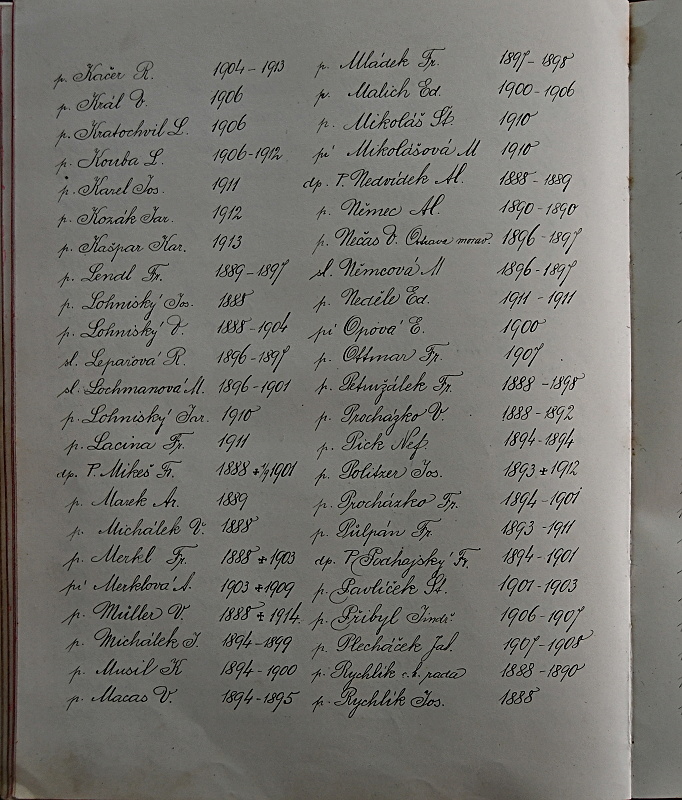 p. Kačer R. 1904-1913
p. Král V. 1906
p. Kratochvil L. 1906
p. Kouba L. 1906-1912
p. Karel Jos. 1911
p. Kozák Jar. 1912
p. Kašpar Kar. 1913
p. Lendl Fr. 1889-1897
p. Lohniský Jos. 1888
p. Lohniský V. 1888-1904
sl. Lepařová R. 1896-1897
sl. Lochmanová M. 1896-1901
p. Lohniský Jar. 1910
p. Lacina Fr. 1911
dp. P. Mikeš Fr. 1888 + 1901
p. Marek Ar. 1889
p. Michálek V. 1888
p. Merkl Fr. 1888 + 1903
pí Merklová A. 1903 + 1909
p. Müller V. 1888 + 1914
p. Michálek J. 1894-1899
p. Musil K 1894-1900
p. Macas V. 1894-1895
p. Mládek Fr. 1897-1898
p. Malich Ed. 1900-1906
p. Mikoláš Št. 1910
pí Mikolášová M 1910
dp. P. Nedvídek Al. 1888-1889
p. Němec Al. 1890-1890
p. Nečas V. Ostrava morav. 1896-1897
sl. Němcová M 1896-1897
p. Neděle Ed. 1911-1911
pí Opová E. 1900
p. Ottmar Fr. 1907
p. Petružálek Fr. 1888-1898
p. Procházko V. 1888-1892
p. Pick Nef. 1894-1894
p. Politzer Jos. 1893 + 1912
p. Procházko Fr. 1894-1901
p. Půlpán Fr. 1893-1911
dp. P. Podhajský Fr. 1894-1901
p. Pavlíček St. 1901-1903
p. Přibyl Jindř. 1906-1907
p. Plecháček Jal. 1907-1908
p. Rychlík c. k. rada 1888-1890
p. Rychlík Jos. 1888